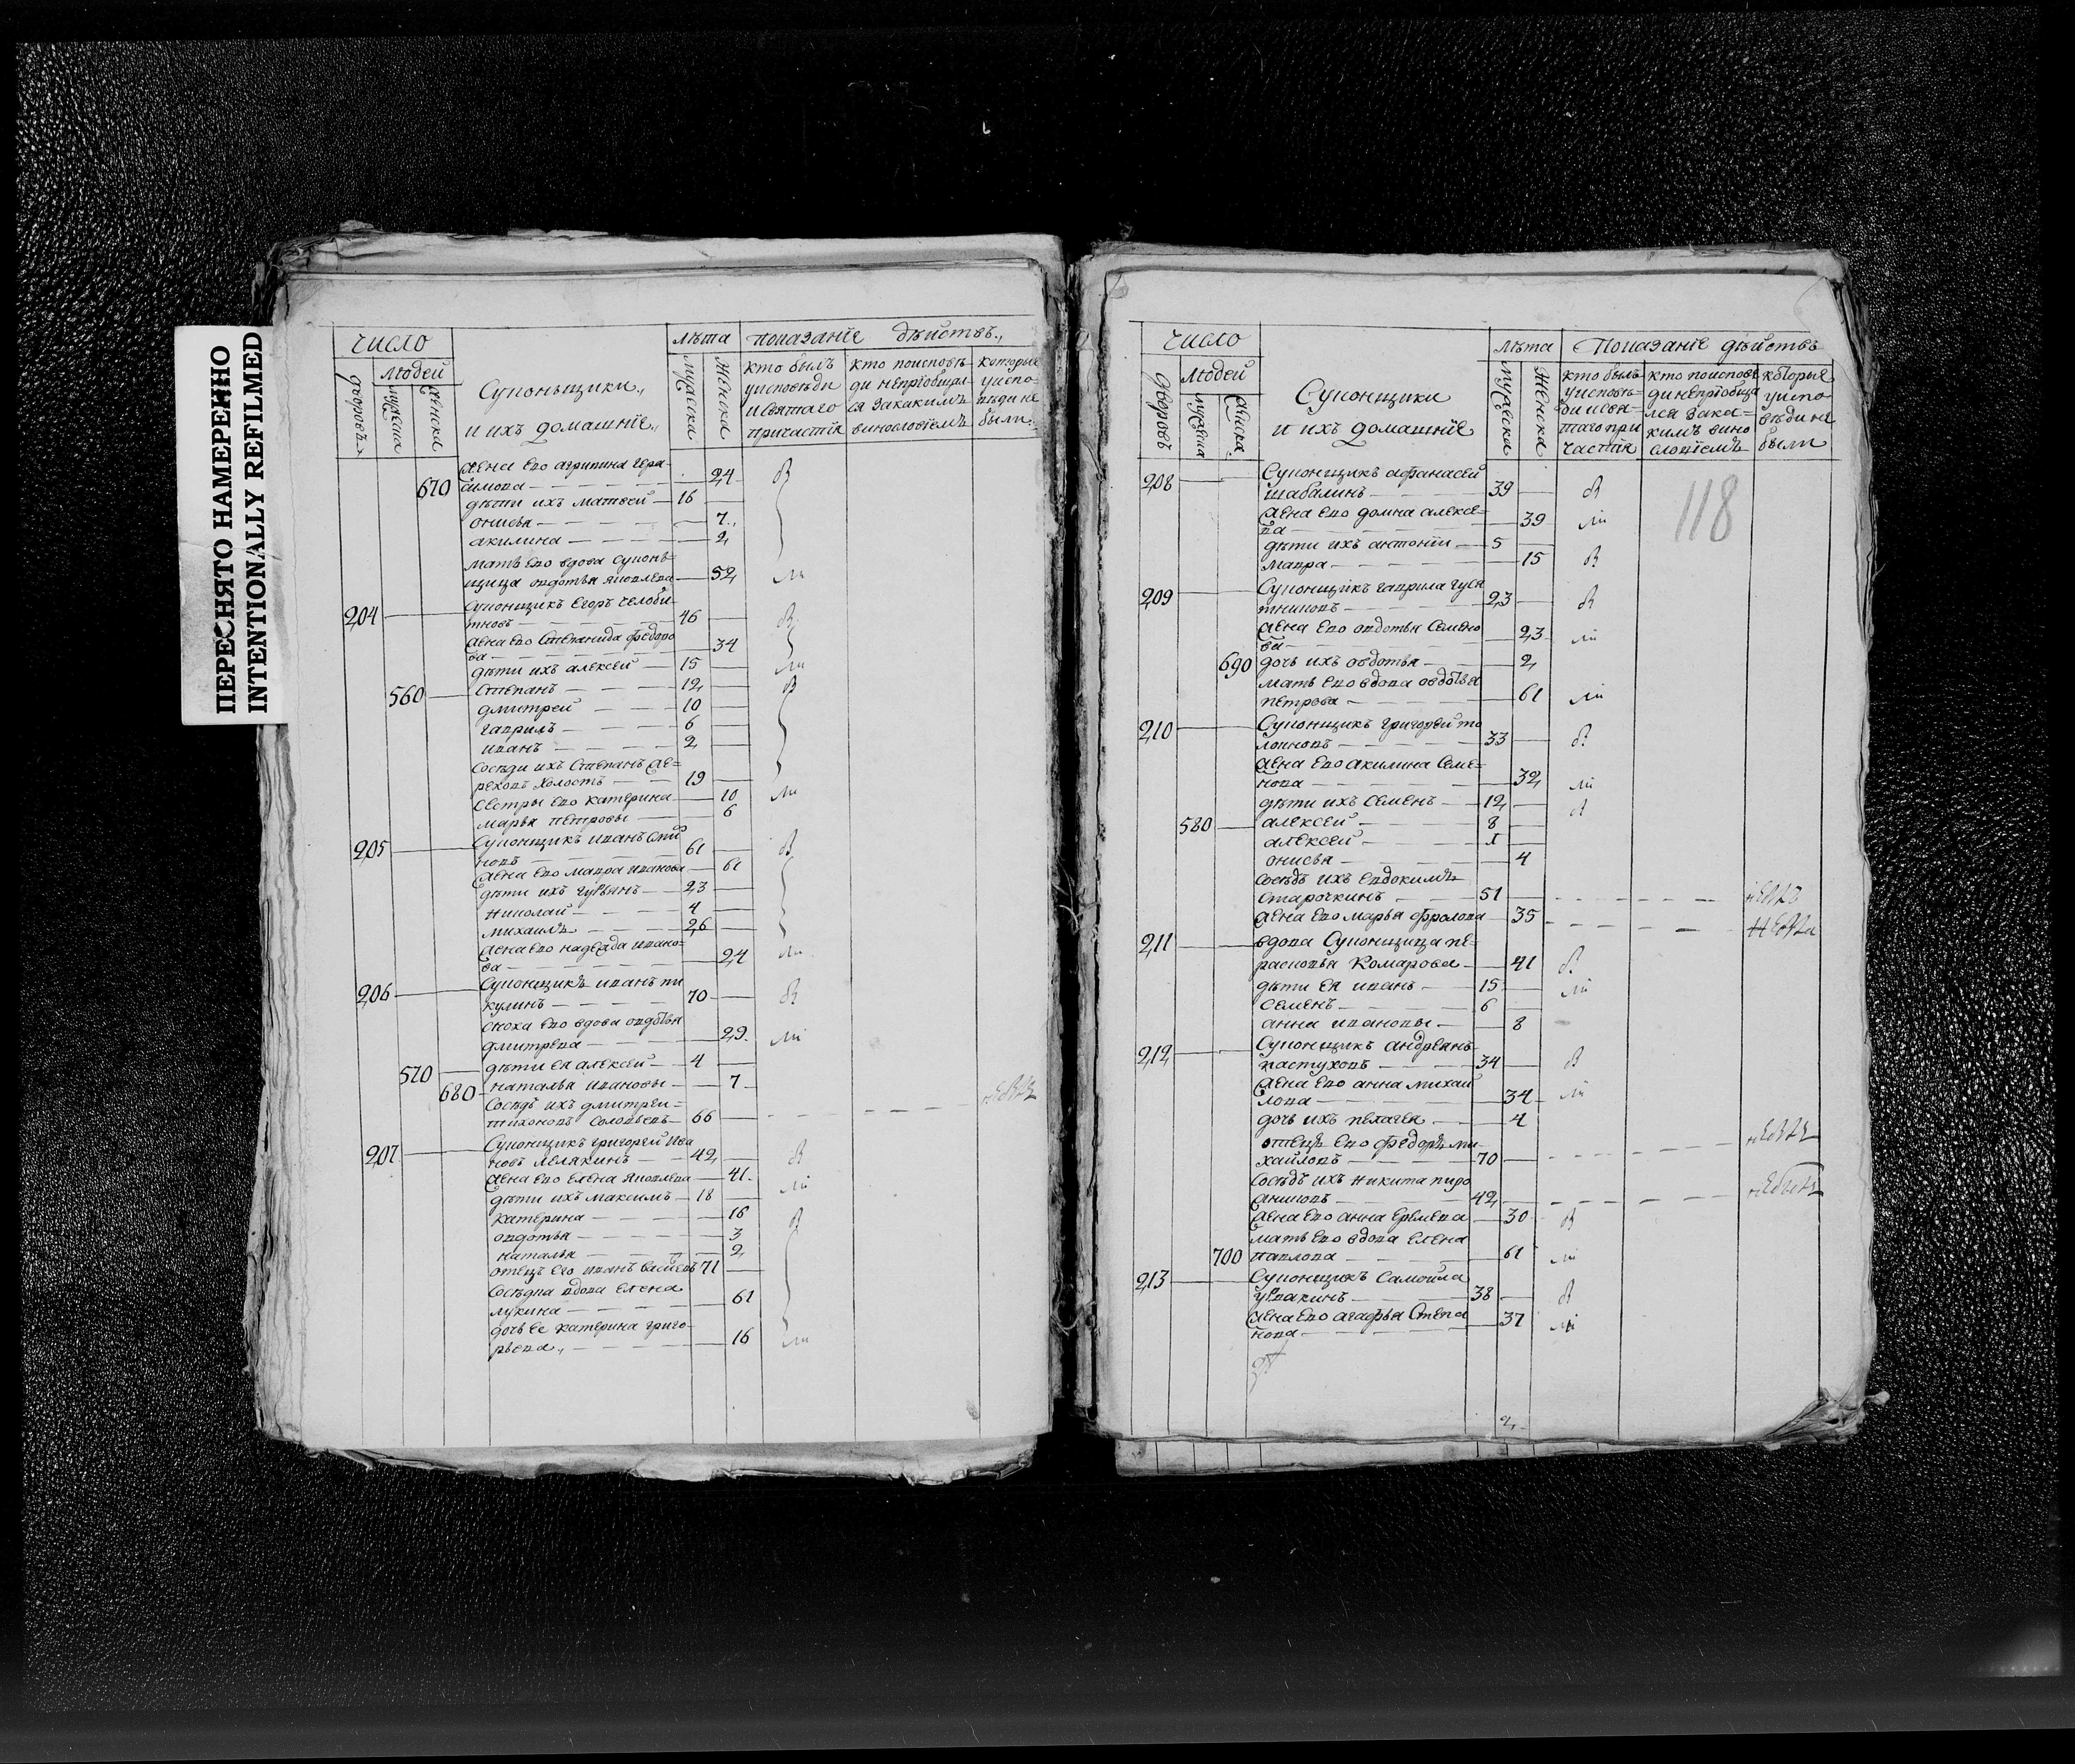 ПЕРЕСНЯТО НАМЕРЕННО
INTENTIONALLY REFILMED
число
лѣта показанїе дѣйствъ
людей
дворовъ
мужеска
женска
Суконьщики
и ихъ домашнїе
мужеска
женска
кто былъ
уисповѣди
исвятаго
причастїя
кто поисповѣ
ди непрїобщил
ся закакимъ
винословїемъ
которые
уиспо
вѣди не
были
жена ево агрипина гера
670 симова 24
дѣти ихъ матвей 16
онисья 7
акилина 2
мать ево вдова сукон
щица овдотья яковлева 52
204 Суконщикъ Егоръ челоби
тновъ 46
жена ево Степанида федоро
ва 34
дѣти ихъ алексей 15
560 Степанъ 12
дмитрей 10
гаврилъ 6
иванъ 2
сосѣди ихъ Степанъ же
реховъ холостъ 19
сестры ево катерина 10
марья петровы 6
205 Суконщикъ иванъ
новъ 61
жена ево мавра иванова 61
дѣти ихъ гурьянъ 23
николай 4
михаилъ 26
жена ево надежда ивано
ва 24
206 Суконщикъ иванъ пи
кулинъ 70
сноха ево вдова овдотья
дмитрева 29
570 дѣти ея алексей 4
680 наталья ивановы 7
сосѣдъ ихъ дмитреи
тихоновъ Соловьевъ 66
207 Суконщикъ григорей ива
новъ лелякинъ 42
жена ево елена яковлева 41
дѣти ихъ максимъ 18
катерина 16
овдотья 3
наталья 2
отецъ его иванъ 71
сосѣдка вдова елена
лукина 61
дочь ее катерина григо
рьева 16
число
лѣта Показанїе дѣйствъ
людей
дворовъ
мужеска
женска
Суконщики
и ихъ домашнїе
мужеска
женска
кто былъ
уисповѣ
ди исвя
таго при
частїя
кто поисповѣ
ди непрїобща
лся зака
кимъ вино
словїемъ
которые
уиспо
вѣди не
были
118
208 Суконщикъ афанасей
шабалинъ 39
жена ево домна алексе
ва 39
дѣти ихъ антонїи 5
мавра 15
209 Суконщикъ гаврила гуся
тниковъ 23
жена ево овдотья Семено
ва 23
690 дочь ихъ овдотья 2
мать ево вдова овдотья
петрова 61
210 Суконщикъ григорей то
локновъ 33
жена ево акилина Семе
нова 32
дѣти ихъ Семенъ 12
580 алексей 8
алексей 1
онисья 4
сосѣдъ ихъ Евдокимъ
старочкинъ 51
жена ево марья фролова 35
211 вдова Суконщица пе
расковья Комарова 41
дѣти ея иванъ 15
Семенъ 6
анна ивановы 8
212 Суконщикъ андреянъ
пастуховъ 34
жена ево анна михай
лова 34
дочь ихъ пелагея 4
отецъ ево федоръ ми
хайловъ 70
сосѣдъ ихъ никита пиро
жниковъ 42
жена ево анна Еремева 30
мать ево вдова Елена
700 павлова 61
213 Суконщикъ Самойла
38
жена ево агафья Степа
нова 37